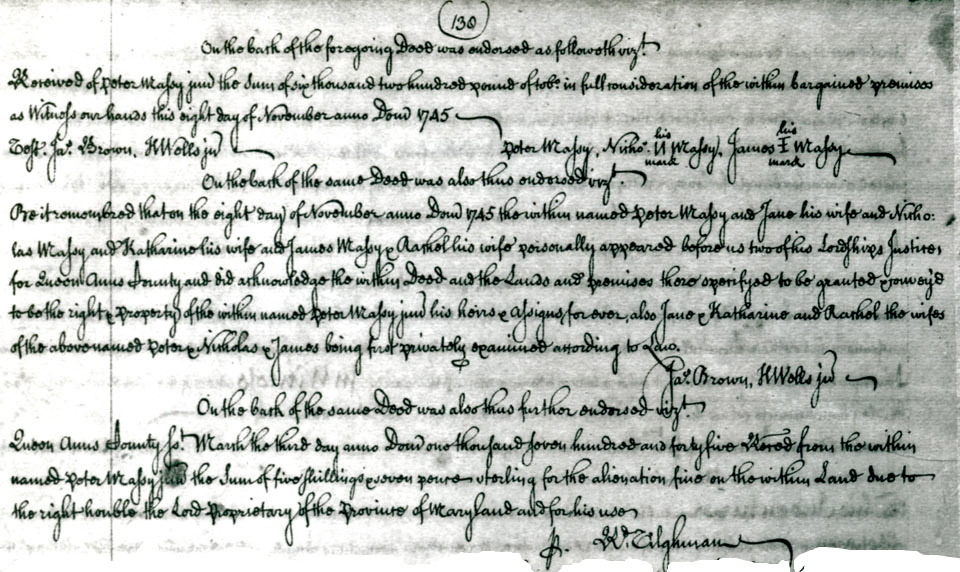 (130)
On the back of the foregoing Deed was endorsed as followeth vizt.
Received of Peter Massy junr the Sum of six thousand two hundred pound of tobo. in full consideration of the within bargained premises
as Witness our hands this eight day of November anno Dom 1745
Test. Jas. Brown, HWells junr
Peter Massy, Nicho. his N mark Massy, James his I mark Massy
On the back of the same Deed was also thus endorsed vizt.
Be it remembred that on the eight day of November anno Dom 1745 the within named Peter Massy and Jane his wife and Nicho:
las Massy and Katharine his wife and James Massy & Rachel his wife personally appeared before us two of his Lordships Justices
for Queen Anns County and did acknowledge the within Deed and the Lands and premises there specifyed to be granted & conveyd
to be the right & Property of the within named Peter Massy junr his heirs & assigns for ever, also Jane & Katharine and Rachel the wifes
of the abovenamed Peter & Nicholas & James being first privately examined according to Law.
Jas. Brown, HWells junr
On the back of the same Deed was also thus further endorsed vizt.
Queen Anns County Sst. March the third day anno Dom one thousand seven hundred and forty five Reced from the within
named Peter Massy junr the Sum of five shillings & seven pence sterling for the alienation fine on the within Land due to
the right honble the Lord Proprietary of the Province of Maryland and for his use
P. Wm. Tilghman